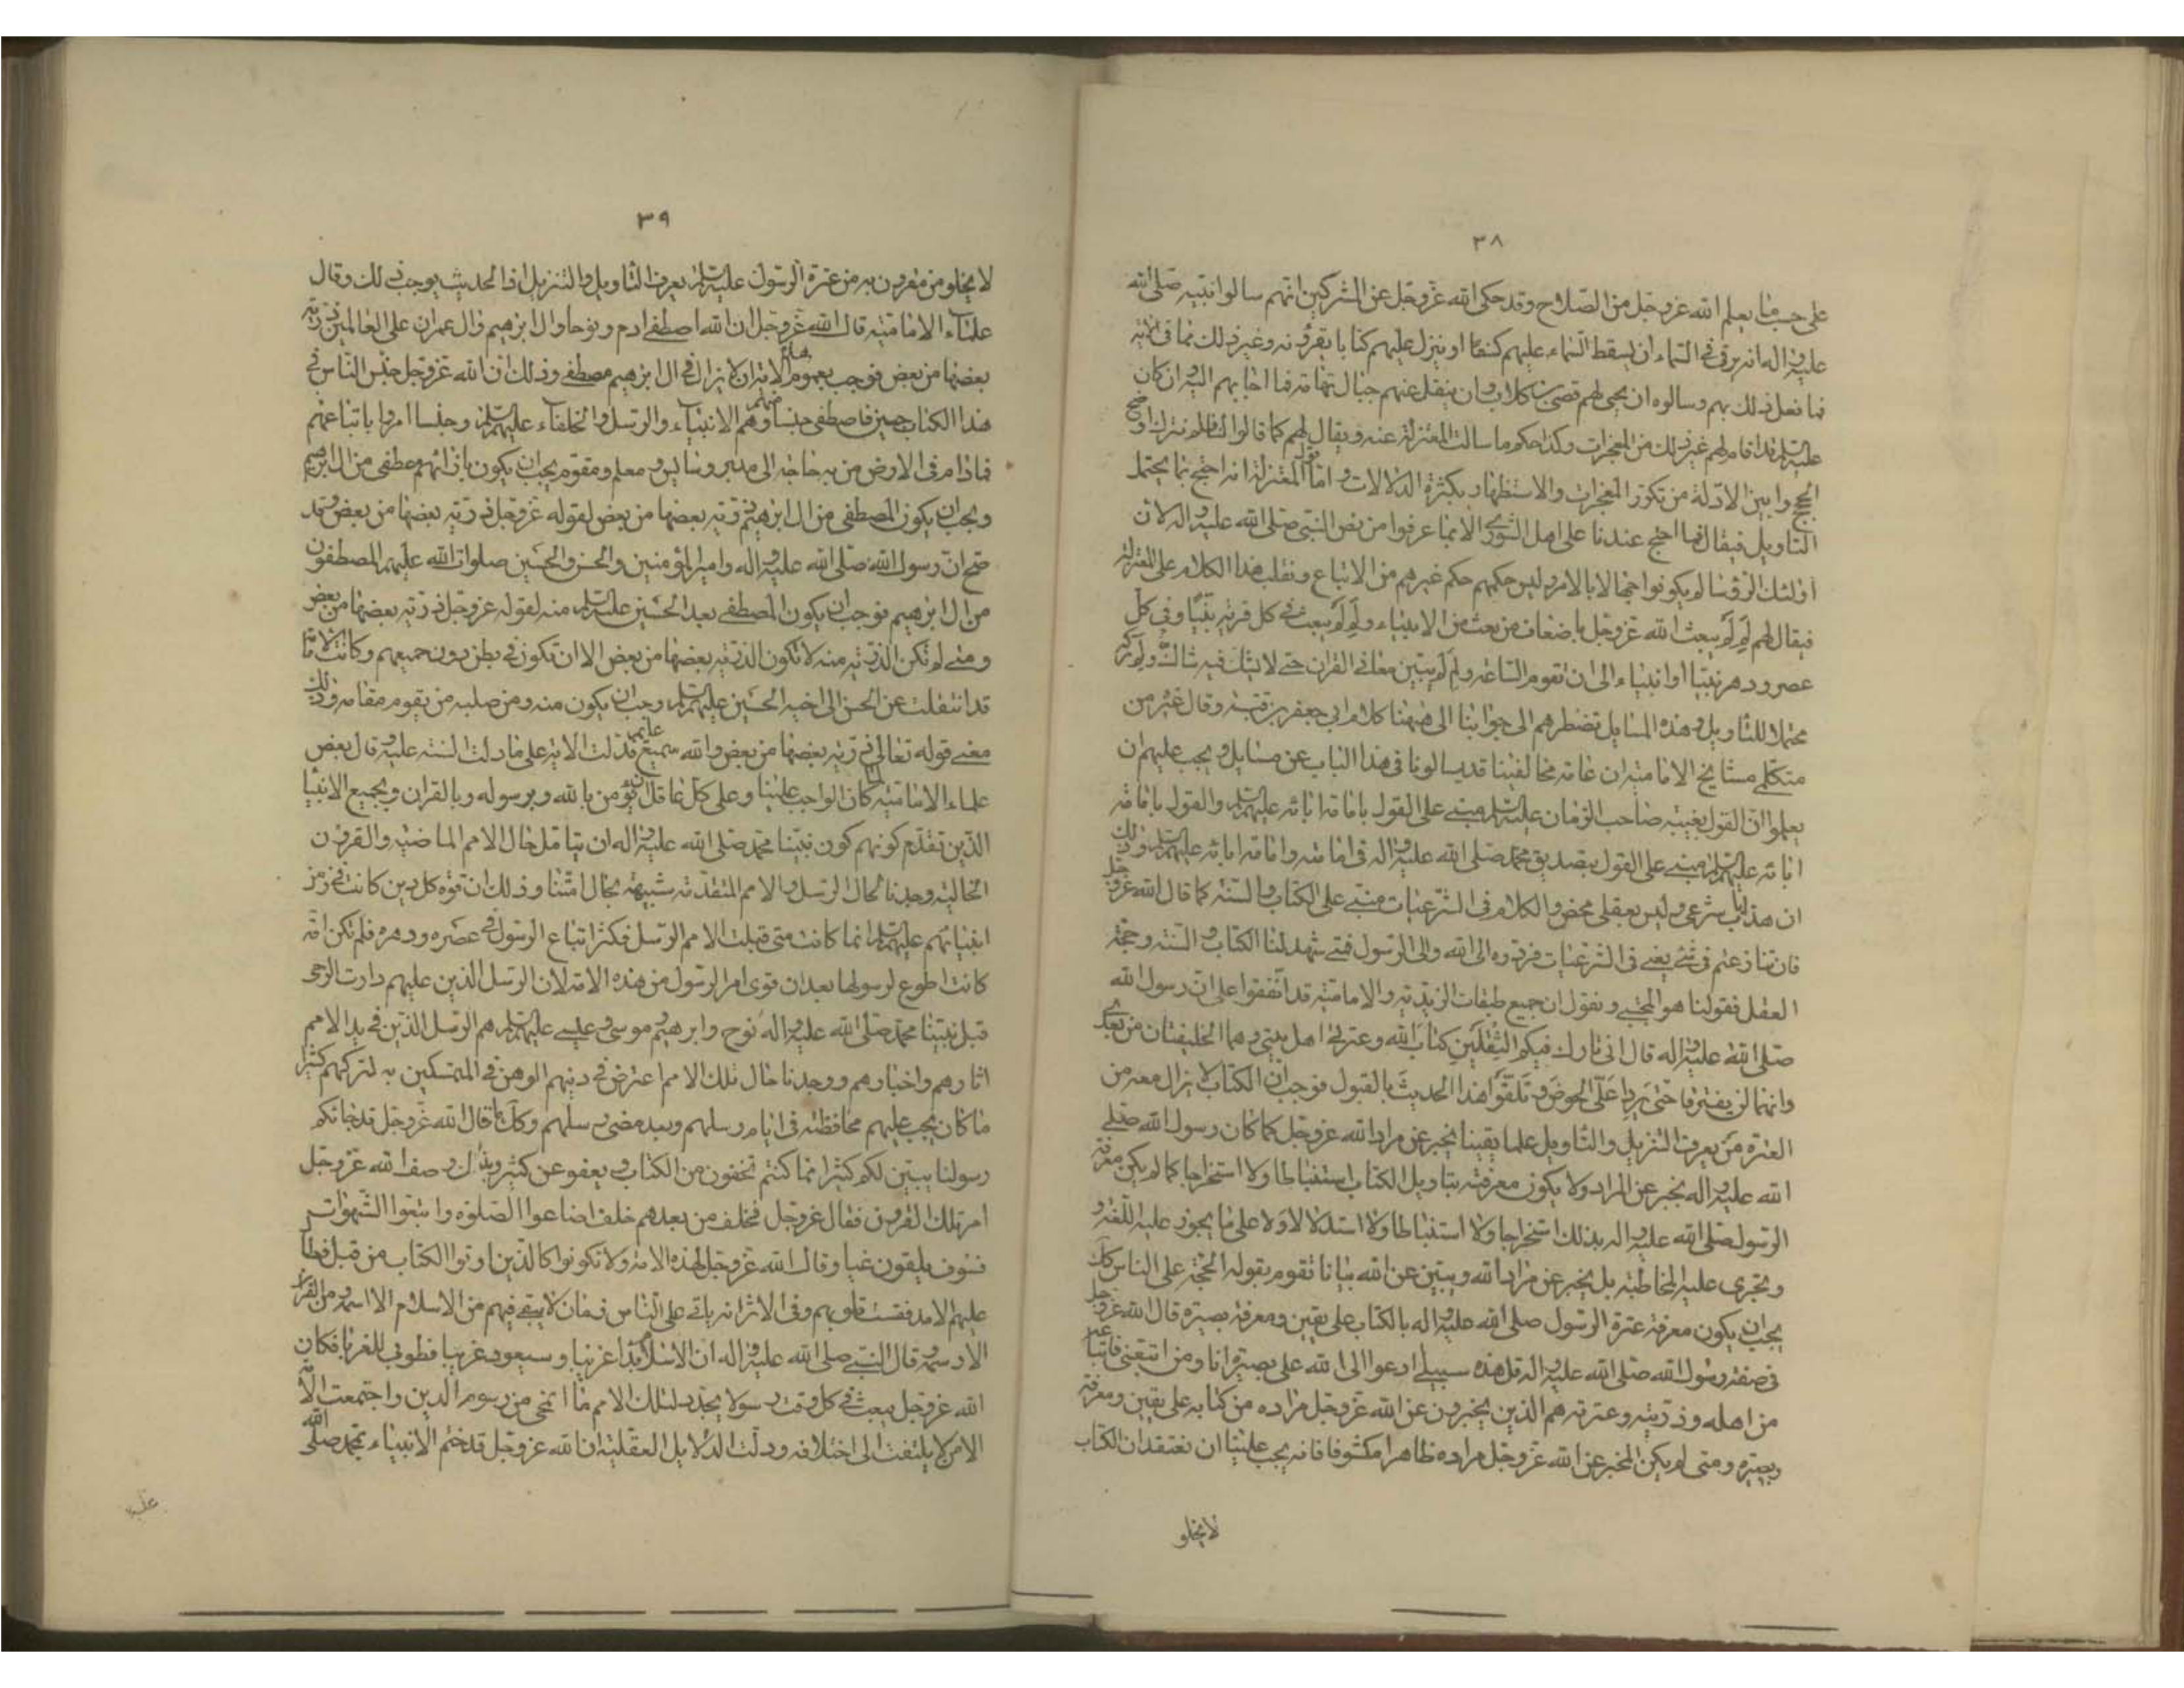 ٣٨
على حسب ما يعلم الله عزوجل من الصلاح وقد حكى الله عزوجل عن المشركين انهم سالوا نبيه صلى الله
عليه واله ان يرقى فى السماء وان يسقط السماء عليهم كسفا او ينزل عليهم كتابا يقرؤنه وغير ذلك مما فى الاية
فما فعل ذلك بهم وسالوه ان يحيى لهم قصى بن كلاب وان ينقل عنهم جبال تهامة فما اجابهم اليه وان كان
عليه السلم قد اقام لهم غير ذلك من المعجزات وكذا حكم ما سالت المعتزلة عنه ويقال لهم كما قالوا لنا فلم نترك اوضح
الحجج وابين الادلة من تكرر المعجزات والاستظهار بكثرة الدلالات واما قول المعتزلة انه احتج بما يحتمل
التاويل فيقال فما احتج عندنا على اهل الشورى الا بما عرفوا من نص النبى صلى الله عليه واله لان
اولئك الرؤسا لم يكونوا جهالا بالامر وليس حكمهم حكم غيرهم من الاتباع ونقلب هذا الكلام على المعتزلة
فيقال لهم لم لم يبعث الله عزوجل باضعاف من بعث من الانبياء ولم لم يبعث فى كل قرية نبيا وفى كل
عصر ودهر نبيا او انبياء الى ان تقوم الساعة ولم لم يبين معانى القران حتى لا يشك فيه شاك ولم تركه
محتملا للتاويل وهذه المسايل تضطرهم الى جوابنا الى هيهنا كلام ابى جعفر بن قبة وقال غيره من
متكلمى مشايخ الامامية ان عامة مخالفينا قد يسالونا فى هذا الباب عن مسايل ويجب عليهم ان
يعلموا ان القول بغيبة صاحب الزمان عليه السلم مبنى على القول بامامة ابائه عليهم السلم والقول بامامة
ابائه عليهم السلم مبنى على القول بتصديق محمد صلى الله عليه واله فى امامته وامامة ابائه عليهم السلم وذلك
ان هذا باب شرعى وليس بعقلى محض والكلام فى الشرعيات مبنى على الكتاب والسنة كما قال الله عزوجل
فان تنازعتم فى شئ يعنى فى الشرعيات فردوه الى الله والى الرسول فمتى شهد لنا الكتاب والسنة وحجة
العقل فقولنا هو المجتبى ونقول ان جميع طبقات الزيدية والامامية قد اتفقوا على ان رسول الله
صلى الله عليه واله قال انى تارك فيكم الثقلين كتاب الله وعترتى اهل بيتى وهما الخليفتان من بعدى
وانهما لن يفترقا حتى يردا على الحوض وتلقوا هذا الحديث بالقبول فوجب ان الكتاب لا يزال معه من
العترة من يعرف التنزيل والتاويل علما يقينا يخبر عن مراد الله عزوجل كما كان رسول الله صلى
الله عليه واله يخبر عن المراد ولا يكون معرفته بتاويل الكتاب استنباطا ولا استخراجا كما لم يكن معرفة
الرسول صلى الله عليه واله بذلك استخراجا ولا استنباطا ولا استدلالا ولا على ما يجوز عليه اللغة و
وتجرى عليه المخاطبة بل يخبر عن مراد الله ويبين عن الله بيانا تقوم بقوله الحجة على الناس كك
يجب ان يكون معرفة عترة الرسول صلى الله عليه واله بالكتاب على يقين ومعرفة بصيرة قال الله عزوجل
فى صفة رسول الله صلى الله عليه واله قل هذه سبيلى ادعوا الى الله على بصيرة انا ومن اتبعنى فاتباعه
من اهله وذريته وعترته هم الذين يخبرون عن الله عزوجل مراده من كتابه على يقين ومعرفة
وبصيرة ومتى لم يكن المخبر عن الله عزوجل مراده ظاهرا مكشوفا فانه يجب علينا ان نعتقد ان الكتاب
لا يخلو
٣٩
لا يخلو من مقرون به من عترة الرسول عليه السلم يعرف التاويل والتنزيل اذ الحديث يوجب ذلك وقال
علماء الامامية قال الله عزوجل ان الله اصطفى ادم ونوحا وال ابرهيم وال عمران على العالمين ذرية
بعضها من بعض فوجب بعموم هذه الاية ان لا يزال فى ال ابرهيم مصطفى وذلك ان الله عزوجل جنس الناس فى
هذا الكتاب جنسين فاصطفى جنسا منهم وهم الانبياء والرسل والخلفاء عليهم السلم وجنسا امروا باتباعهم
فما دام فى الارض من به حاجة الى مدبر وسايس ومعلم ومقوم يجب ان يكون بازائهم مصطفى من ال ابرهيم
ويجب ان يكون المصطفى من ال ابرهيم ذرية بعضها من بعض لقوله عزوجل ذرية بعضها من بعض وقد
صح ان رسول الله صلى الله عليه واله وامير المؤمنين والحسن والحسين صلوات الله عليهم المصطفون
من ال ابرهيم فوجب ان يكون المصطفى بعد الحسين عليه السلم منه لقوله عزوجل ذرية بعضها من بعض
ومتى لم تكن الذرية منه لا تكون الذرية بعضها من بعض الا ان تكون فى بطن دون جميعهم وكانت الامامة
قد انتقلت عن الحسن الى اخيه الحسين عليهما السلم وجب ان يكون منه ومن صلبه من يقوم مقامه وذلك
معنى قوله تعالى ذرية بعضها من بعض والله سميع عليم فدلت الاية على ما دلت السنة عليه وقال بعض
علماء الامامية كان الواجب علينا وعلى كل عاقل يؤمن بالله وبرسوله وبالقران وبجميع الانبياء
الذين تقدم كونهم كون نبينا محمد صلى الله عليه واله ان يتامل حال الامم الماضية والقرون
الخالية وجدنا حال الرسل والامم المتقدمة شبيهة بحال امتنا وذلك ان قوة كل دين كانت فى زمن
انبيائهم عليهم السلم انما كانت متى قبلت الامم الرسل فكثر اتباع الرسول فى عصره ودهره فلم تكن امة
كانت اطوع لرسولها بعد ان قوى امر الرسول من هذه الامة لان الرسل الذين عليهم دارت الرحى
قبل نبينا محمد صلى الله عليه واله نوح وابرهيم وموسى وعيسى عليهم السلم هم الرسل الذين فى يد الامم
اثارهم واخبارهم ووجدنا حال تلك الامم اعترض فى دينهم الوهن فى المتمسكين به لتركهم كثيرا
مما كان يجب عليهم محافظته فى ايام رسلهم وبعد مضى رسلهم وكك ما قال الله عزوجل قد جائكم
رسولنا يبين لكم كثيرا مما كنتم تخفون من الكتاب ويعفو عن كثير وبذلك وصف الله عزوجل
امر تلك القرون فقال عزوجل فخلف من بعدهم خلف اضاعوا الصلوة واتبعوا الشهوات
فسوف يلقون غيا وقال الله عزوجل لهذه الامة ولا تكونوا كالذين اوتوا الكتاب من قبل فطال
عليهم الامد فقست قلوبهم وفى الاثر انه ياتى على الناس زمان لا يبقى فيهم من الاسلام الا اسمه ومن القران
الا رسمه وقال النبى صلى الله عليه واله ان الاسلام بدا غريبا وسيعود غريبا فطوبى للغربا فكان
الله عزوجل يبعث فى كل وقت رسولا يجدد لتلك الامم ما انمحى من رسوم الدين واجتمعت الامة
الا من لا يلتفت الى اختلافه ودلت الدلايل العقلية ان الله عزوجل قد ختم الانبياء بمحمد صلى الله
عليه